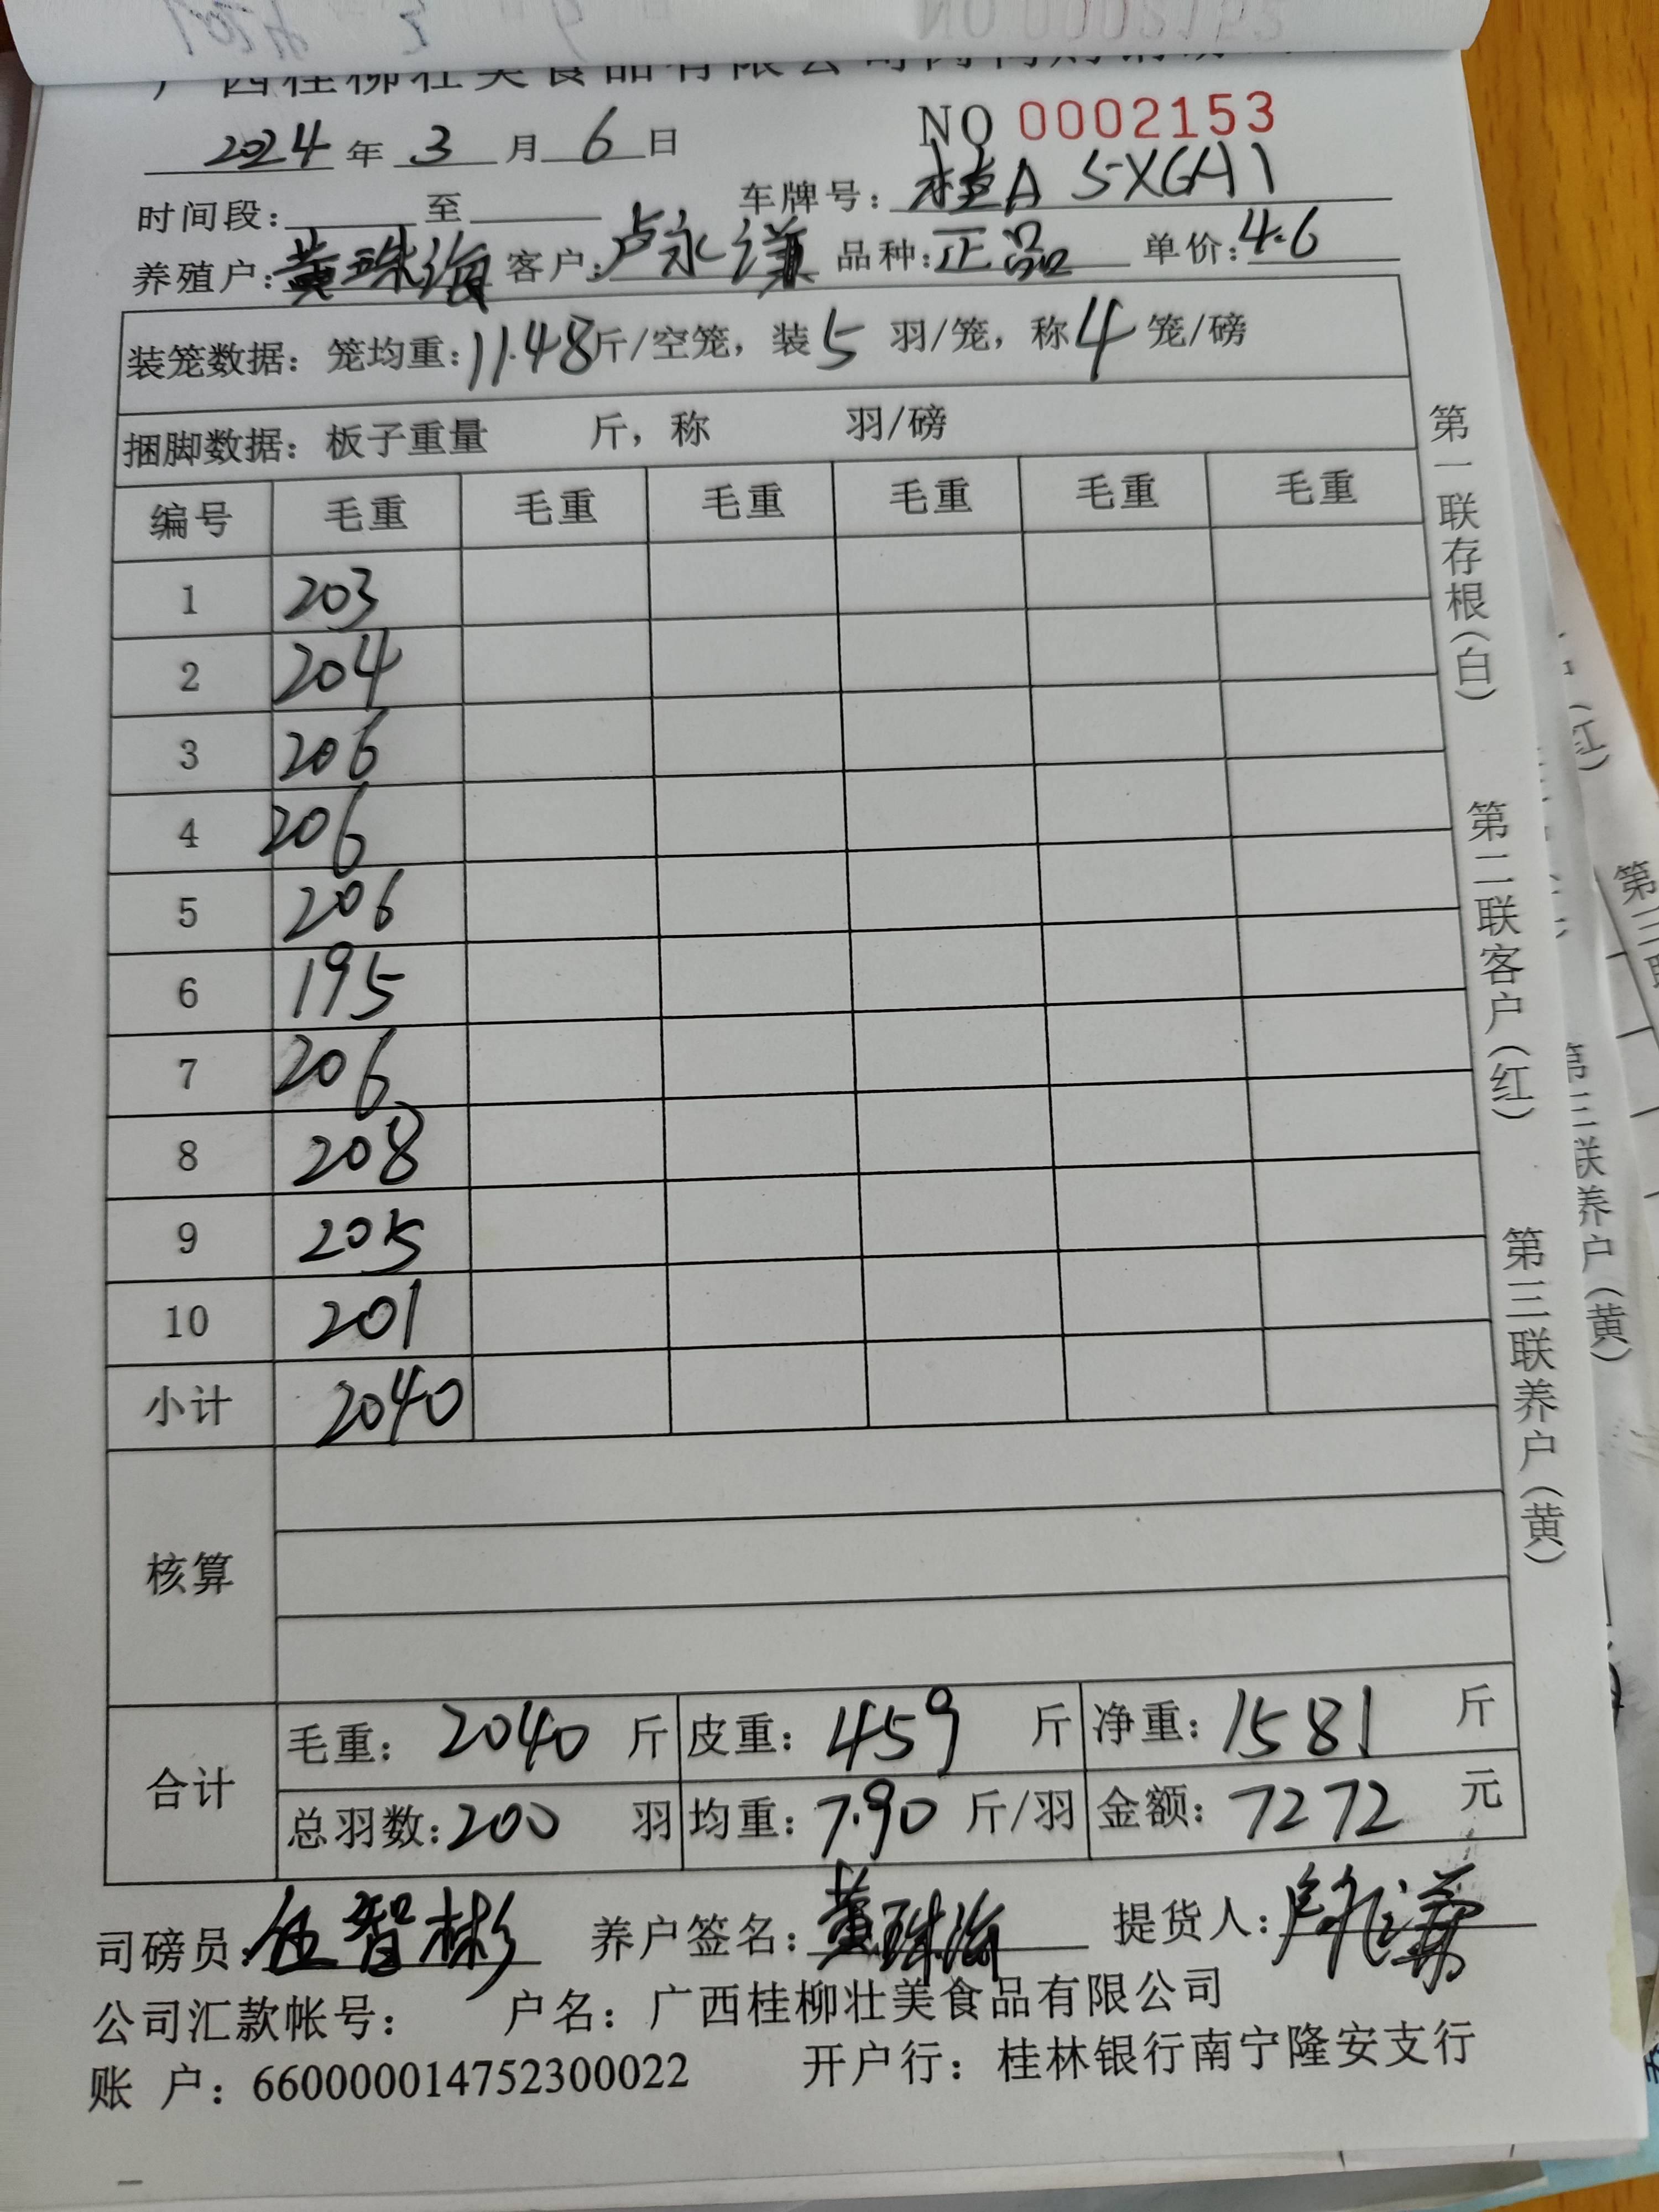 NO 0002153
2024年3月6日
时间段: 至 车牌号: 桂A 5XGH1
养殖户: 黄珠海 客户: 卢永谦 品种: 正品 单价: 4.6
装笼数据: 笼均重: 11.48斤/空笼, 装5羽/笼, 称4笼/磅
捆脚数据: 板子重量 斤, 称 羽/磅
编号 毛重 毛重 毛重 毛重 毛重 毛重
1 203
2 204
3 206
4 206
5 206
6 195
7 206
8 208
9 205
10 201
小计 2040
核算
合计
毛重: 2040 斤 皮重: 459 斤 净重: 1581 斤
总羽数: 200 羽 均重: 7.90 斤/羽 金额: 7272 元
司磅员: 伍智彬 养户签名: 黄珠海 提货人: 卢永谦
公司汇款帐号: 户名: 广西桂柳壮美食品有限公司
账 户: 660000014752300022 开户行: 桂林银行南宁隆安支行
第一联存根(白) 第二联客户(红) 第三联养户(黄)